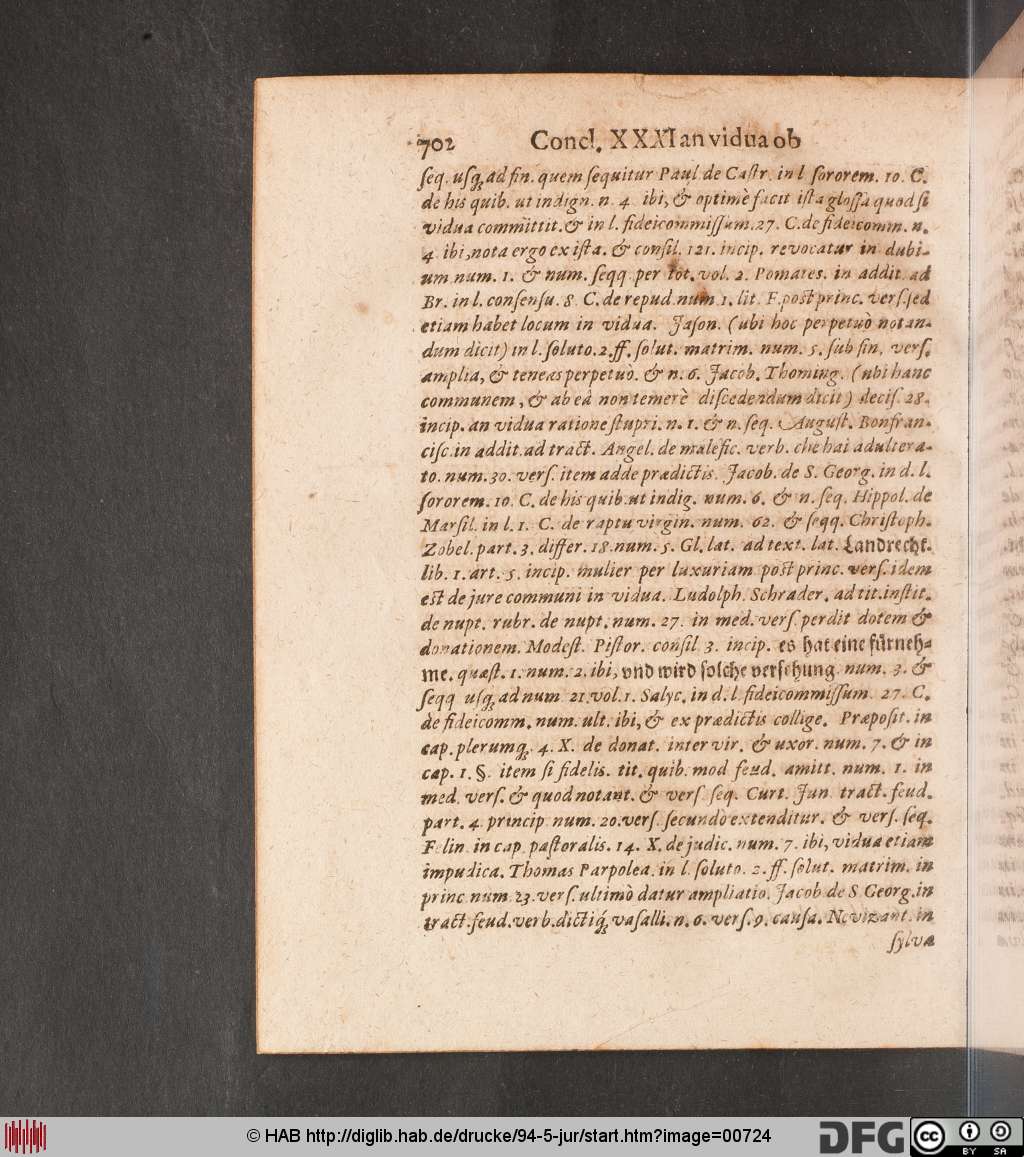 702 Concl. XXXI an vidua ob
seq. usq; ad fin. quem sequitur Paul de Castr. in l sororem. 10. C.
de his quib. ut indign. n. 4 ibi, & optimè facit ista glossa quod si
vidua committit. & in l. fideicommissum. 27. C. de fideicomm. n.
4 ibi, nota ergo ex ista. & consil. 121. incip. revocatur in dubi-
um num. 1. & num. seqq per tot. vol. 2. Pomares. in addit. ad
Br. in l. consensu. 8 C. de repud. num. 1. lit. F. post princ. vers. sed
etiam habet locum in vidua. Jason. (ubi hoc perpetuò notan-
dum dicit) in l. soluto. 2. ff. solut. matrim. num. 5. sub fin, vers.
amplia, & teneas perpetuò. & n. 6. Jacob. Thoming. (ubi hanc
communem, & ab eâ non temerè discedendum dicit) decis. 28.
incip. an vidua ratione stupri. n. 1. & n. seq. August. Bonfran-
cisc. in addit. ad tract. Angel. de malefic. verb. che hai adultera-
to. num. 30. vers. item adde prædictis. Jacob. de S. Georg. in d. l.
sororem. 10. C. de his quib. ut indig. num. 6. & n. seq. Hippol. de
Marsil. in l. 1. C. de raptu virgin. num. 62. & seqq. Christoph.
Zobel. part. 3. differ. 18. num. 5. Gl. lat. ad text. lat. Landrecht.
lib. 1. art. 5. incip. mulier per luxuriam post princ. vers. idem
est de jure communi in vidua. Ludolph. Schrader. ad tit. instit.
de nupt. rubr. de nupt. num. 27. in med. vers. perdit dotem &
donationem. Modest. Pistor. consil. 3. incip. es hat eine fürneh-
me. quæst. 1. num. 2. ibi, vnd wird solche versehung. num. 3. &
seqq usq; ad num 21. vol. 1. Salyc. in d. l. fideicommissum. 27. C.
de fideicomm. num. ult. ibi, & ex prædictis collige. Præposit. in
cap. plerumq; 4. X. de donat. inter vir. & uxor. num. 7. & in
cap. 1. §. item si fidelis. tit. quib. mod feud. amitt. num. 1. in
med. vers. & quod notant. & vers. seq. Curt. Jun tract. feud.
part. 4. princip. num. 20. vers. secundò extenditur. & vers. seq.
Felin. in cap. pastoralis. 14. X. de judic. num. 7. ibi, vidua etiam
impudica. Thomas Parpolea. in l. soluto. 2. ff. solut. matrim. in
princ. num. 23. vers. ultimò datur ampliatio. Jacob de S Georg. in
tract. feud. verb. dictiq; vasalli. n. 6. vers. 9. causa. Novizant. in
sylva
© HAB http://diglib.hab.de/drucke/94-5-jur/start.htm?image=00724
DFG
cc
BY SA